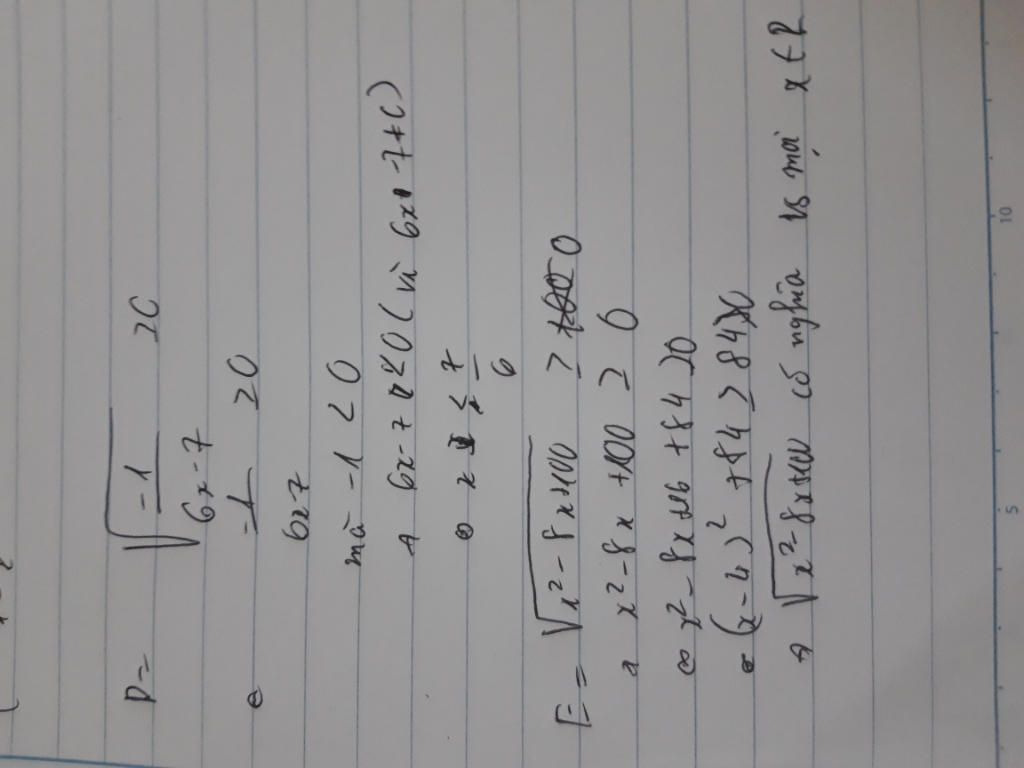 D = √(-1/(6x-7)) ≥0
⇔ -1/6x7 ≥0
mà -1 < 0
⇒ 6x-7 < 0 ( vì 6x -7 ≠ 0)
⇔ x < 7/6
E = √(x² - 8x+100) ≥ 0
x² - 8x +100 ≥ 0
⇔ x² - 8x +16 +84 ≥0
⇔ (x - 4)² + 84 ≥ 84
⇒ √(x² - 8x+100) có nghĩa vs mọi x ∈ R
5
10